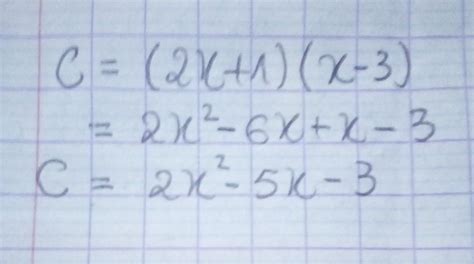 C = (2x+1)(x-3)
= 2x²-6x+x-3
C = 2x²-5x-3